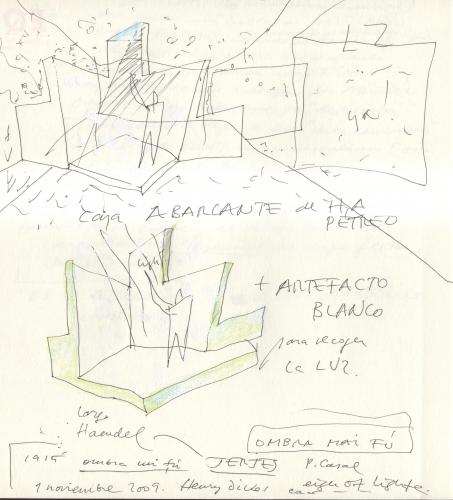 LZ
ya!
Caja ABARCANTE de HA
PETREO
+ ARTEFACTO
BLANCO
para recoger
la LUZ.
Largo
Haendel
OMBRA MAI FÚ
1915 ombra mi fú JERJES P. Casal
1 noviembre 2009. Henry